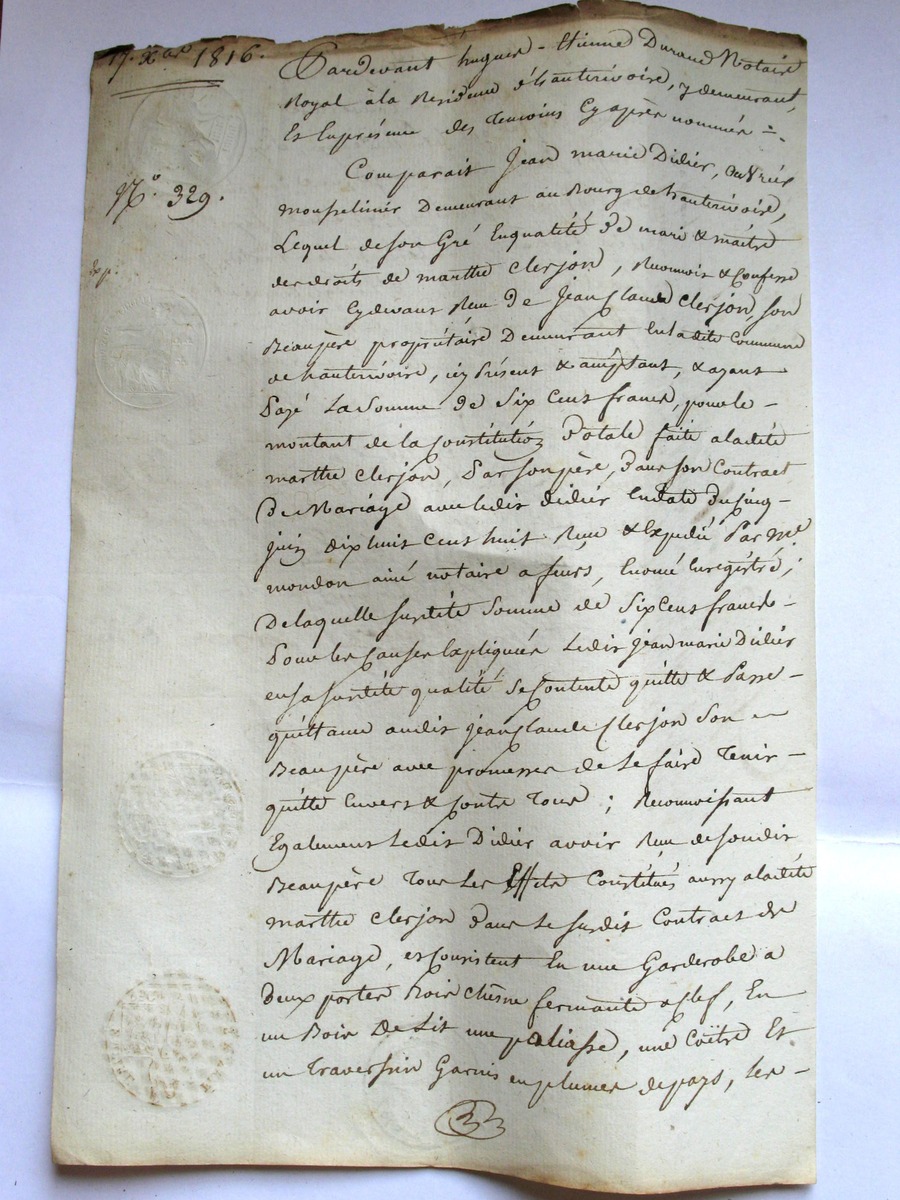 17. Xbre 1816.
N.° 329.
Exp.
Pardevant hugues-Etienne Durand Notaire
Royal à la Residence d'hauterivoire, y demeurant,
Et En présence des Temoins Cy après nommés =
Comparait Jean marie Didier, ouvrier
mousselinier Demeurant au Bourg de hauterivoire,
Lequel de son Gré En qualité de mari & maitre
des droits de marthe Clerjon, Reconnoit & Confesse
avoir Cy devant Reçu de Jean Claude Clerjon, son
Beaupère propriétaire Demeurant En la dite Commune
de hauterivoire, icy Présent & acceptant, & ayant
Payé La Somme de Six Cens francs, pour le -
montant de la Constitution Dotale faite a la dite
marthe Clerjon, Par son père, dans son Contract
De Mariage avec ledit Didier En date du cinq -
juin dix huit Cent huit Reçu & Expedié Par Me
mondon ainé notaire a feurs, Enregistré ;
De laquelle susdite Somme de Six Cens francs -
Pour les Causes Expliquées Ledit Jean marie Didier
en sa susdite qualité Se Contente quitte & Passe -
quittance audit jean Claude Clerjon Son
Beaupère avec promesse de Le faire Tenir -
quitte Envers & Contre Tous ; Reconnoissant
Egalement Ledit Didier avoir Reçu de sondit
Beaupère Tous Les Effets Constitués aussy a la dite
marthe Clerjon dans Le susdit Contract de
Mariage, et Consistent En une Garderobe a
deux portes Bois Chêne fermante a Clef, En
un Bois De Lit une paliasse, une Coëtre Et
un Traversin Garnis en plumes de pays, Les -